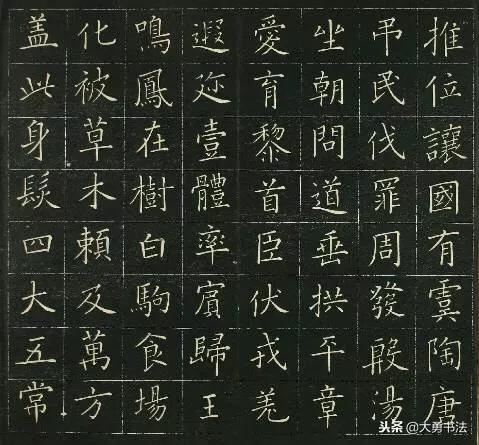 推位讓國有虞陶唐
吊民伐罪周發殷湯
坐朝問道垂拱平章
愛育黎首臣伏戎羌
遐迩壹體率賓歸王
鳴鳳在樹白駒食場
化被草木賴及萬方
盖此身髮四大五常
头条 @大勇书法